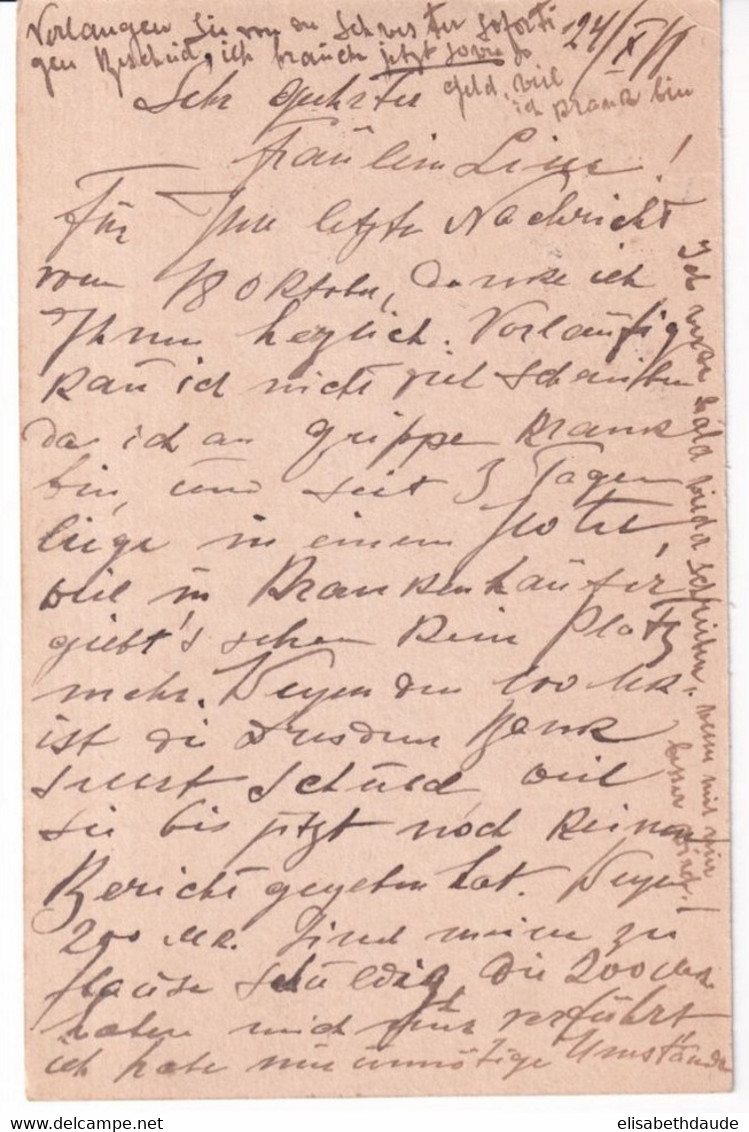 Verlangen Sie von der Schwester soforti
gen Bescheid, ich brauche jetzt sowieso
Geld, weil
ich krank bin
24/X
Sehr geehrtes
Fräulein Liese!
Für Ihre letzte Nachricht
vom 18 Oktober, danke ich
Ihnen herzlich. Vorläufig
kan ich nicht viel schreiben
da ich an Grippe krank
bin, und seit 3 Tagen
liege in einem Hotel,
weil in Krankenhäuser
giebt's schon kein Platz
mehr. Wegen den 100 Mk-
ist die Dresdner Bank
selbst schuld weil
sie bis jetzt noch keinen
Bericht gegeben hat. Wegen
200 Mk. sind meine zu
Hause schuldig die 200 Mk
haben mich nur verführt
ich habe nur unnötige Umstände
Ich werde bald wieder schreiben, wenn mir nur
besser wird!
elisabethdaude